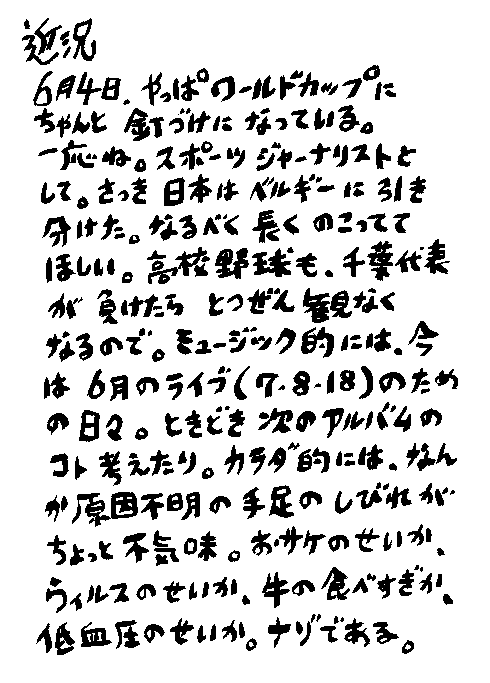 近況
6月4日、やっぱワールドカップに
ちゃんと釘づけになっている。
一応ね。スポーツジャーナリストと
して。さっき日本はベルギーに引き
分けた。なるべく長くのこってて
ほしい。高校野球も、千葉代表
が負けたらとつぜん観なく
なるので。ミュージック的には、今
は6月のライブ(7・8・18)のため
の日々。ときどき次のアルバムの
コト考えたり。カラダ的には、なん
か原因不明の手足のしびれが
ちょっと不気味。おサケのせいか、
ウィルスのせいか、牛の食べすぎか、
低血圧のせいか。ナゾである。